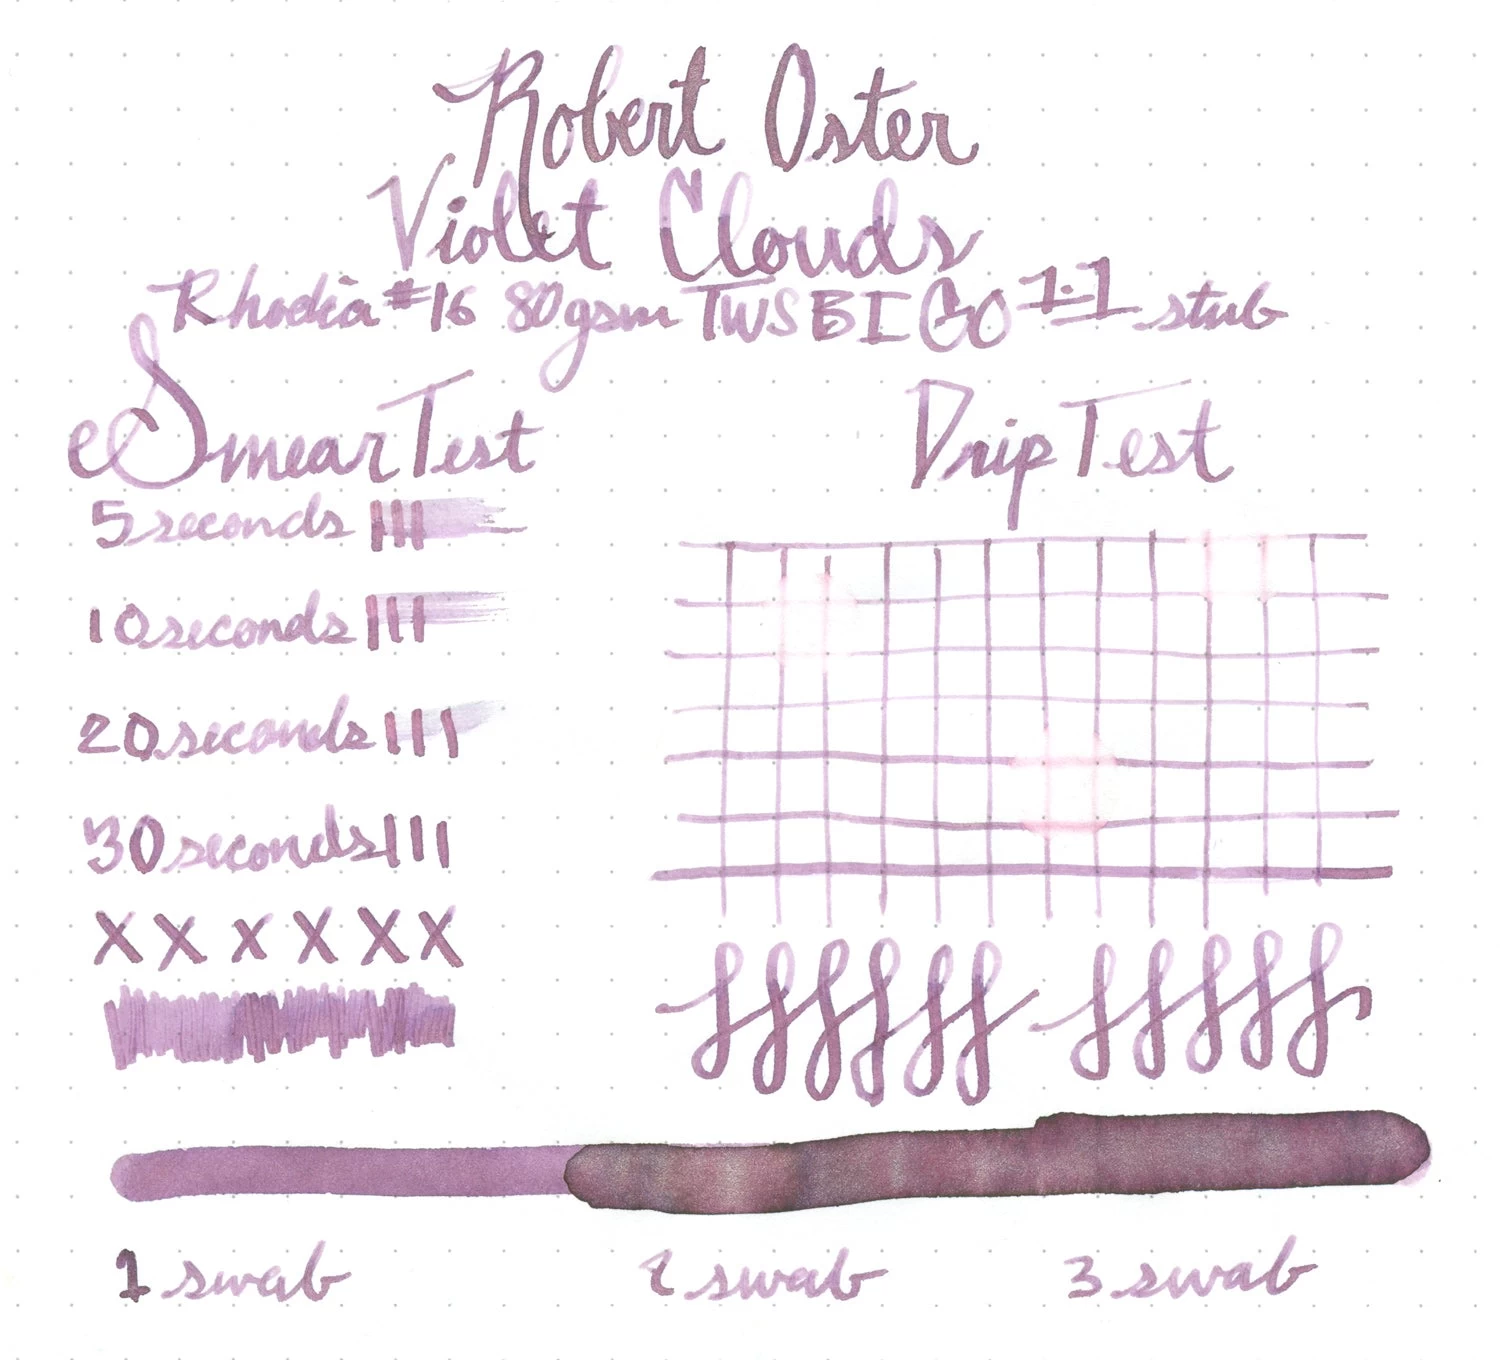 Robert Oster
Violet Clouds
Rhodia #16 80gsm TWSBI GO 1.1 stub
Smear Test
Drip Test
5 seconds
10 seconds
20 seconds
30 seconds
x x x x x x
1 swab
2 swab
3 swab